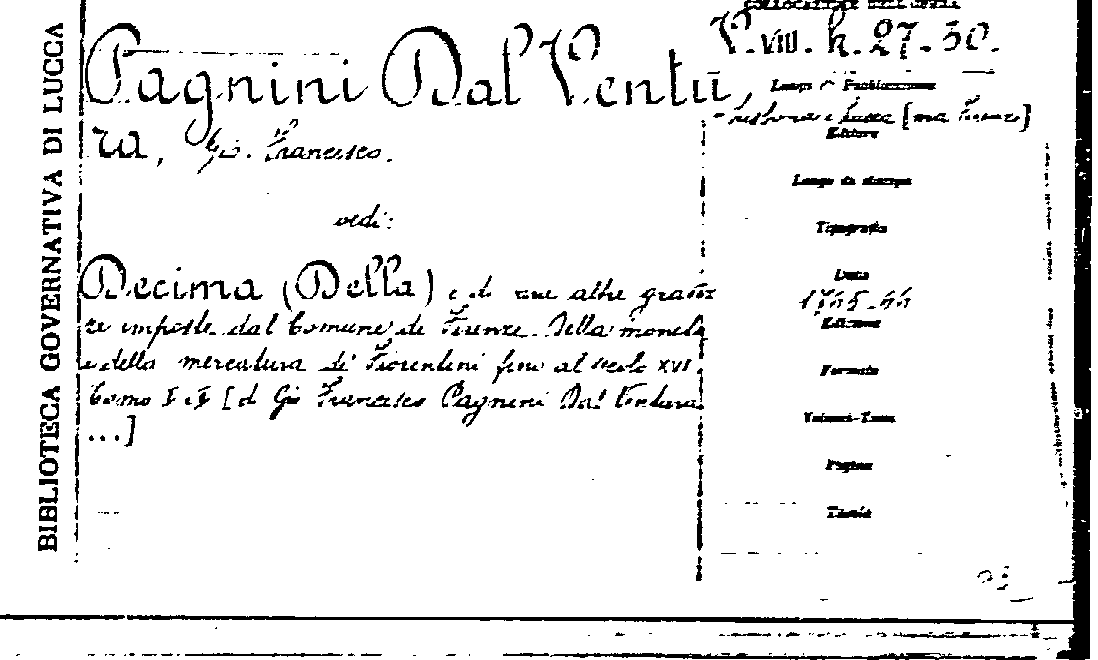 BIBLIOTECA GOVERNATIVA DI LUCCA
COLLOCAZIONE DELL'OPERA
V. VIII. h. 27-30.
Pagnini Dal Ventu,
ra, Gio. Francesco.
Luogo di Pubblicazione
- Lisbona e Lucca [ma Firenze]
Editore
Luogo di stampa
Tipografia
Data
1765-66
Edizione
Formato
Volumi-Tomi
Pagine
Tavole
vedi:
Decima (Della) e di altre gravez
ze imposte dal Comune di Firenze Della moneta
e della mercatura di Fiorentini fino al secolo XVI.
Tomo I [d Gio Francesco Pagnini Dal Ventura
...]